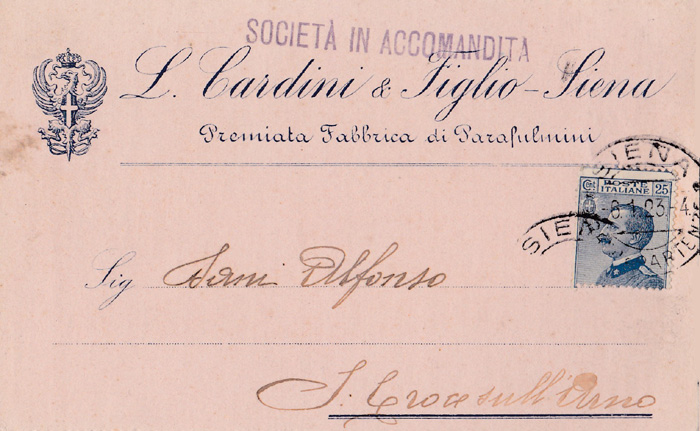 SOCIETÀ IN ACCOMANDITA
L. Cardini & Figlio - Siena
Premiata Fabbrica di Parafulmini
SIENA
Cent. POSTE ITALIANE 25
-8.1.23-4
SIE
PARTENZE
Sig Bani Alfonso
S. Croce sull'Arno